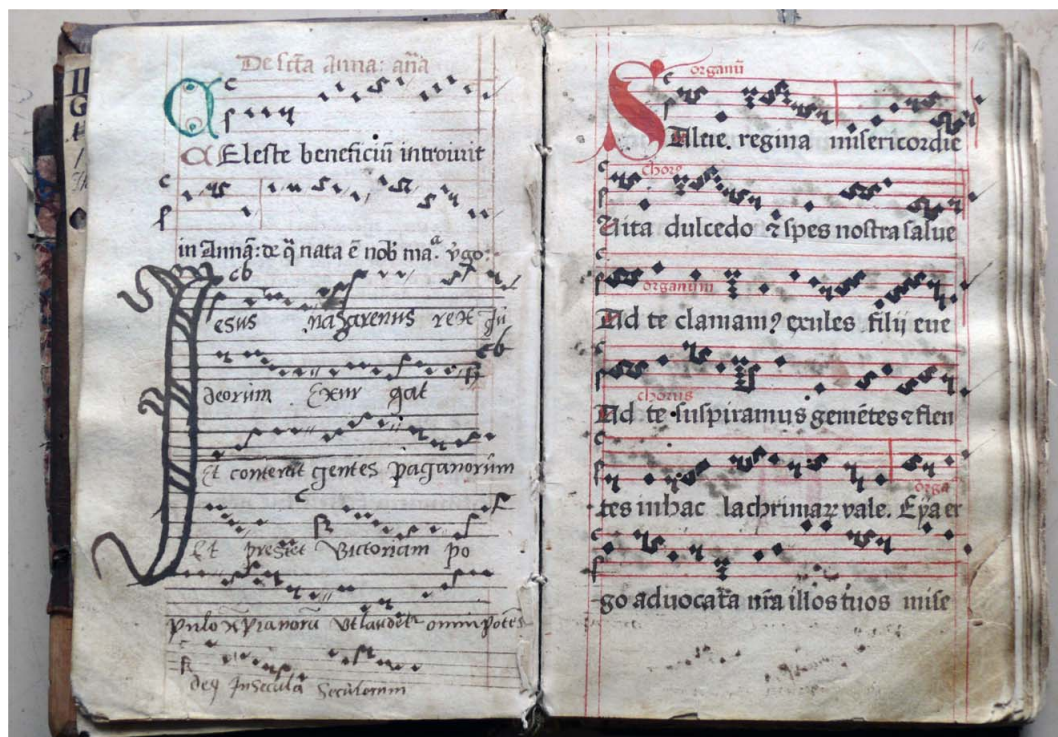 De scta anna: aña
CEleste beneficiū introiuit
in Annā: de q̄ nata ē nob ma.ª v̄go:
Jesus nazarenus rex Ju
deorum Exur gat
Et conterat gentes paganorūm
Et prestet Victoriam po
pulo xp̄ianorū vt laudet omnipotēs
deꝰ In secula seculorum
organū
SAlue. regina misericordie
chorꝰ
Uita dulcedo ⁊ spes nostra salue
organum
Ad te clamamꝰ exules filij eue
chorus
Ad te suspiramus gemētes ⁊ flen
tes in hac lachrimaꝝ vale. Eya er
orga
go aduocata nr̄a illos tuos mise